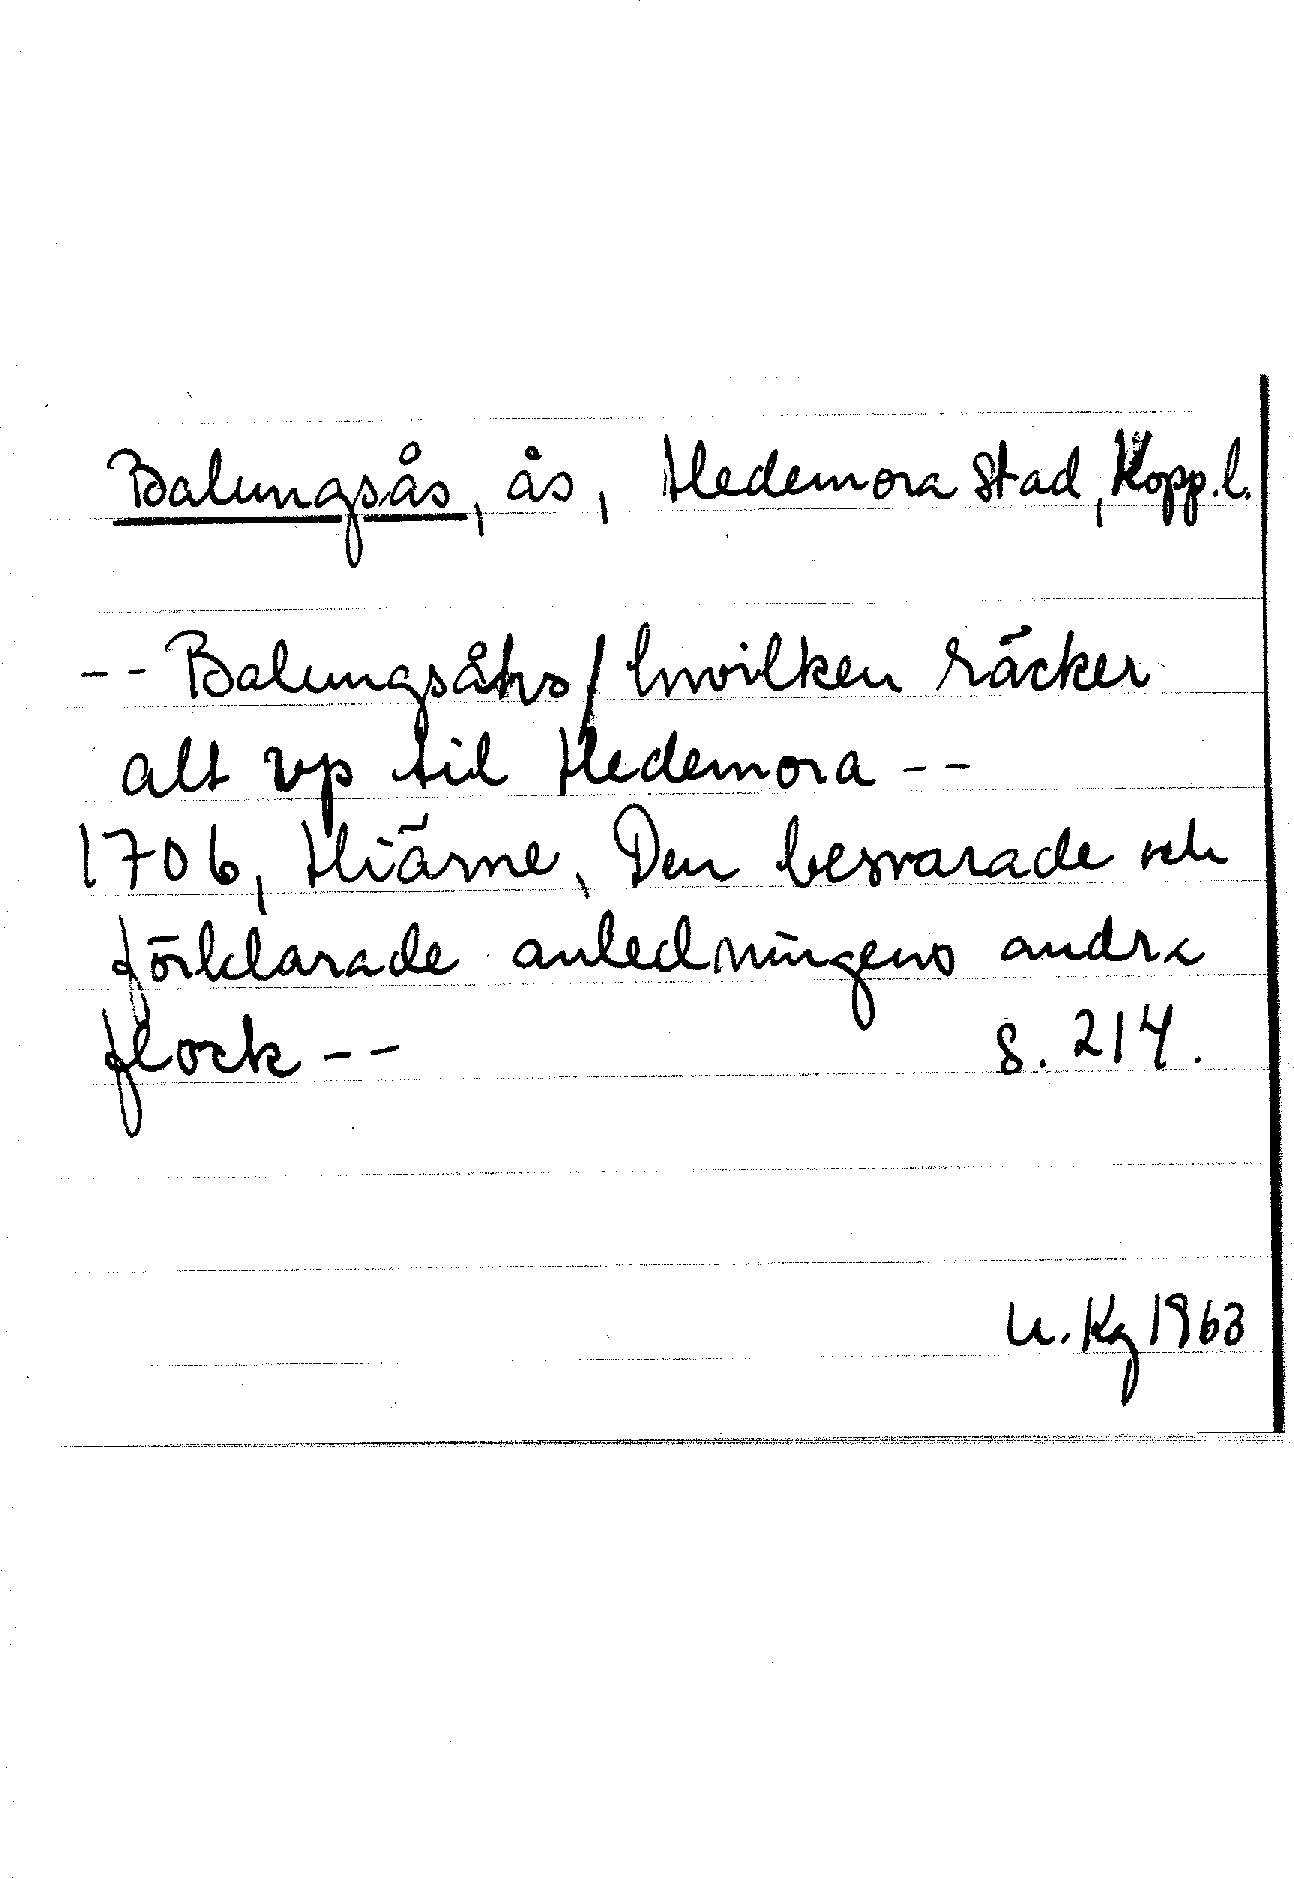 Balungsås, ås, Hedemora Stad, Kopp.l.
-- Balungsåhs/hwilken räcker
alt vp til Hedemora --
1706, Hiärne, Den besvarade och
förklarade anledningens andra
flock -- s. 214.
U. Kg 1963